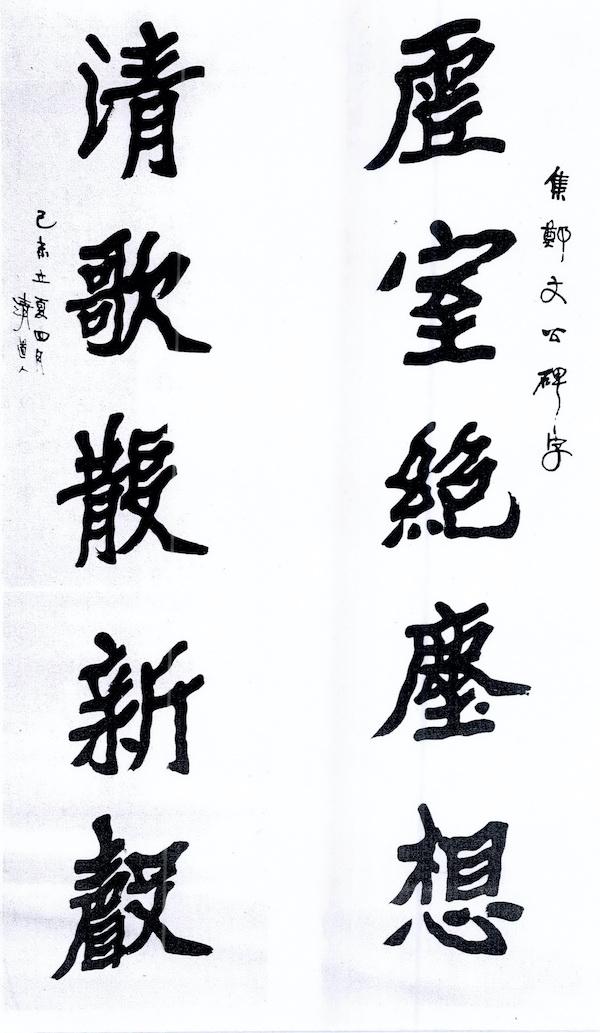 集鄭文公碑字
虛室絶塵想
清歌散新聲
己未立夏四月
清道人